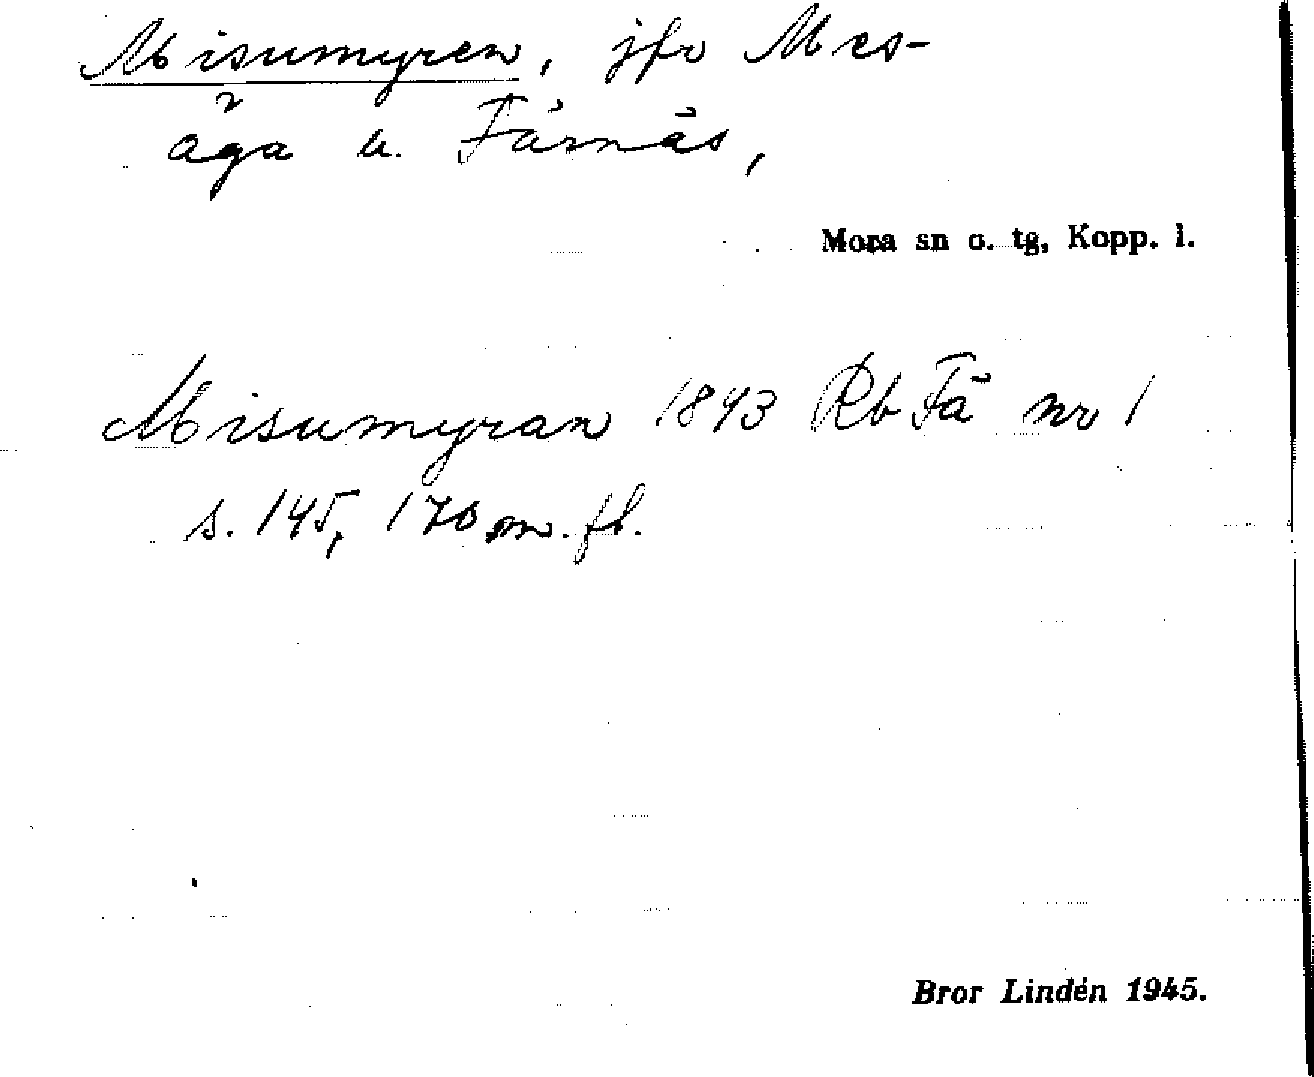 Misumyren, jfr Mes-
åga u. Färnäs,
Mora sn o. tg, Kopp. l.
Misumyran 1843 Rb Fä nr 1
s. 145, 170 m. fl.
Bror Lindén 1945.